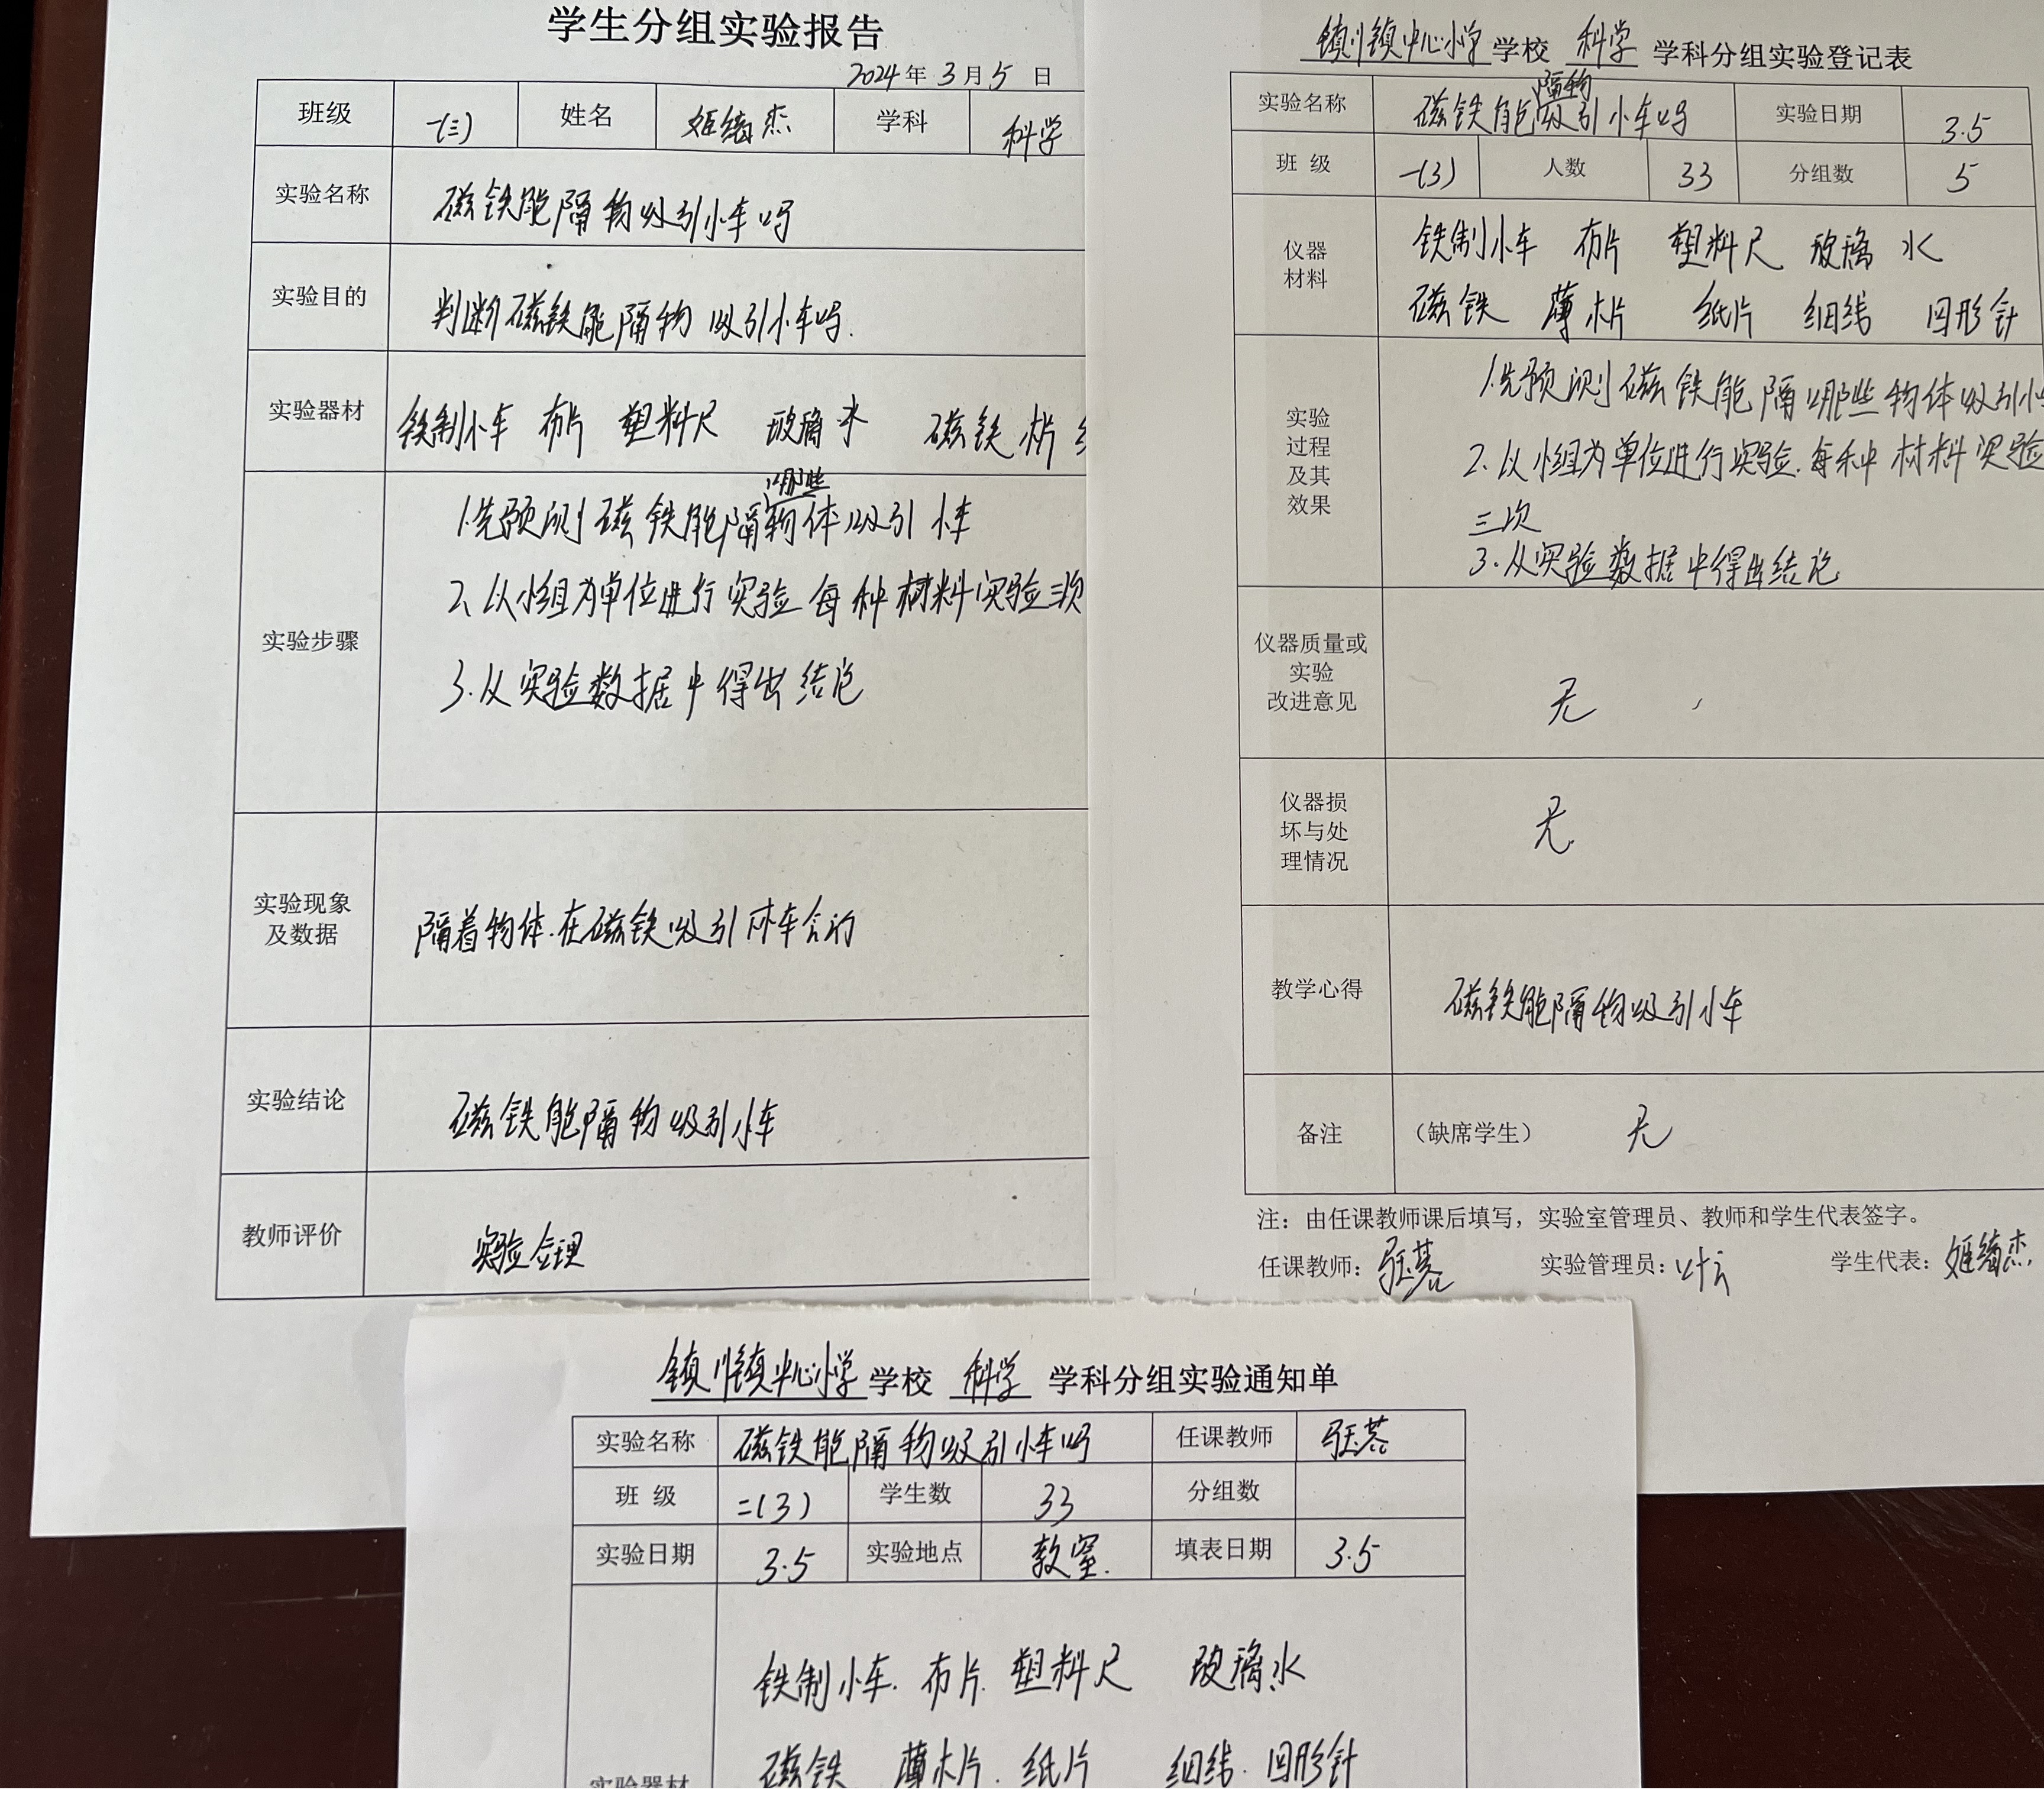 学生分组实验报告
2024年3月5日
班级 一(三) 姓名 姬绪杰 学科 科学
实验名称 磁铁能隔物吸引小车吗
实验目的 判断磁铁能隔物吸引小车吗.
实验器材 铁制小车 布片 塑料尺 玻璃 水 磁铁 木片
哪些
1.先预测磁铁能隔物体吸引小车
实验步骤 2、以小组为单位进行实验 每种材料实验三次
3.从实验数据中得出结论
实验现象
及数据
隔着物体.在磁铁吸引
实验结论 磁铁能隔物吸引小车
教师评价 实验合理
镇川镇中心小学学校 科学 学科分组实验登记表
隔物
实验名称 磁铁能吸引小车吗 实验日期 3.5
班 级 一(3) 人数 33 分组数 5
仪器
材料
铁制小车 布片 塑料尺 玻璃 水
磁铁 薄木片 纸片 细线 回形针
实验
过程
及其
效果
1.先预测磁铁能隔哪些物体吸引小
2.以小组为单位进行实验.每种材料实验
三次
3.从实验数据中得出结论
仪器质量或
实验
改进意见
无
仪器损
坏与处
理情况
无
教学心得 磁铁能隔物吸引小车
备注 （缺席学生） 无
注：由任课教师课后填写，实验室管理员、教师和学生代表签字。
任课教师： 实验管理员：叶云 学生代表：姬绪杰
镇川镇中心小学学校 科学 学科分组实验通知单
实验名称 磁铁能隔物吸引小车吗 任课教师
班 级 二(3) 学生数 33 分组数
实验日期 3.5 实验地点 教室. 填表日期 3.5
铁制小车. 布片. 塑料尺 玻璃水
磁铁 薄木片. 纸片 细线. 回形针
实验器材